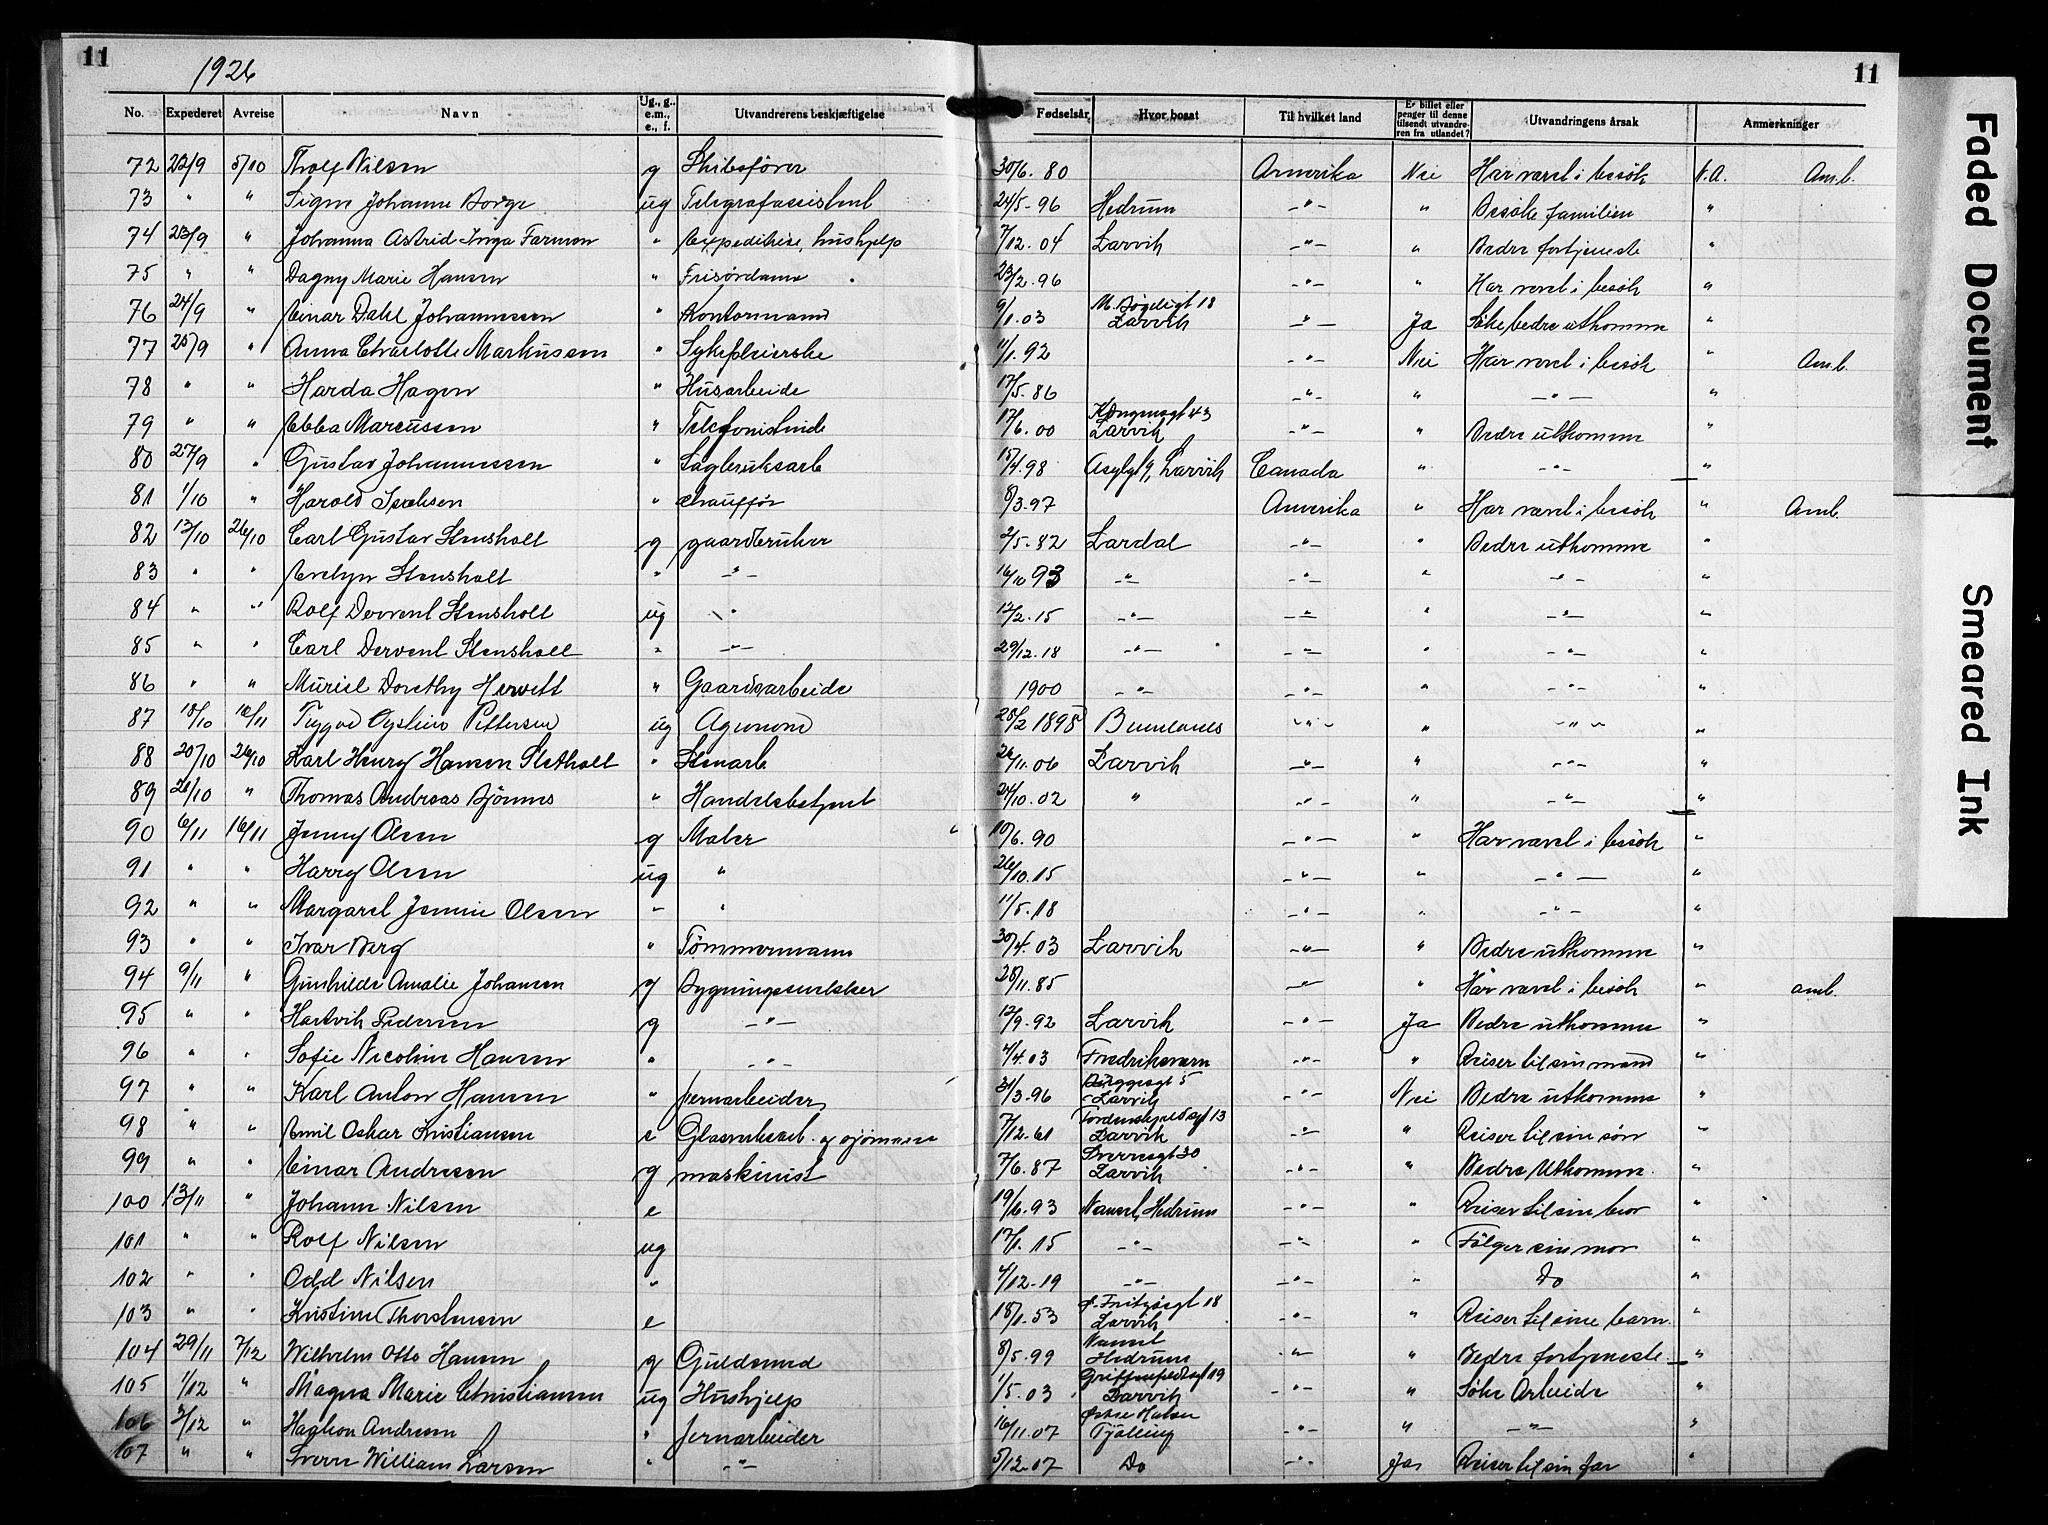 11
1926
11
No. Expederet Avreise Navn Ug., g., e.m., e., f. Utvandrerens beskjæftigelse Fødselsår Hvor bosat Til hvilket land Er billet eller penger til denne tilsendt utvandreren fra utlandet? Utvandringens årsak Anmerkninger
72 22/9 5/10 Nilsen g Skibsfører 30/6. 80 Amerika Nei Har været i besök N.A. Am.b.
73 " " Signe Johanne Borge ug Telegrafassistent 24/5-96 Hedrum -"- " Besöke familien "
74 23/9 " Johanna Astrid Inga Farmen " hushjelp 7/12. 04 Larvik -"- " Bedre fortjeneste "
75 " " Dagny Marie Hansen " Frisördame 23/2.96 -"- " Har været i besök "
76 24/9 " Einar Dahl Johannessen " Kontormand 9/1.03 18 Larvik -"- Ja Söke bedre utkomme "
77 25/9 " Anna Charlotte Markussen " Sykepleierske 11/1.92 -"- Nei Har været i besök " Am.b.
78 " " Harda Hagen " Husarbeide 17/5.86 -"- " -"- "
79 " " Ebba Marcussen " Telefonistinde 17/6.00 Kongensgt 43 Larvik -"- " Bedre utkomme "
80 27/9 " Gustav Johannessen " Sagbruksarb 18/4.98 Asylgt 9, Larvik Canada " -"- "
81 1/10 " Harald Isaksen " Chauffør 8/3.97 Amerika " Har været i besök " Am.b.
82 12/10 26/10 Carl Gustav Stensholt g gaardbruker 2/5.82 Lardal -"- " Bedre utkomme "
83 " " Evelyn Stensholt " -"- 16/10 93 -"- -"- " -"- "
84 " " Rolf Dervent Stensholt ug " 12/2.15 -"- -"- " -"- "
85 " " Carl Dervent Stensholt " -"- 29/12.18 -"- -"- " -"- "
86 " " Muriel Dorothy Hewett " Gaardsarbeide 1900 -"- -"- " -"- "
87 18/10 16/11 Trygve Øystein Pettersen ug Agronom 28/2 1898 Brunlanes -"- " -"- "
88 20/10 26/10 Karl Henry Hansen Sletholt " Stenarb 26/11.06 Larvik -"- " -"- "
89 21/10 " Thomas Andreas Bjönnes " Handelsbetjent 24/10.02 " -"- " -"- "
90 6/11 16/11 Jenny Olsen g Maler " 10/6.90 -"- " Har været i besök "
91 " " Harry Olsen ug " 26/10.15 -"- " -"- "
92 " " Margaret Jennie Olsen " " 11/5.18 -"- " -"- "
93 " " Ivar Berg " Tömmermann 30/4.03 Larvik -"- " Bedre utkomme "
94 9/11 " Gunhilde Amalie Johansen g Bygningssnekker 28/11.85 -"- " Har været i besök " Am.b.
95 " " Hartvik Pedersen g -"- 12/9.92 Larvik -"- Ja Bedre utkomme "
96 " " Sofie Nicoline Hansen " -"- 4/4.03 Fredriksværn -"- " Reiser til sin mand "
97 " " Karl Anton Hansen " Jernarbeider 31/3.96 Bryggegt 5 Larvik -"- Nei Bedre utkomme "
98 " " Emil Oskar Kristiansen e Glasverksarb. og sjömann 7/12.61 Tordenskjoldsgt 13 Larvik -"- " Reiser til sin sön "
99 " " Einar Andresen g maskinist 7/6.87 Sverresgt 30 Larvik -"- " Bedre Utkomme. "
100 13/11 " Johanne Nilsen e 19/6.93 Nanset, Hedrum -"- " Reiser til sin bror "
101 " " Rolf Nilsen ug 17/1.15 -"- -"- " Fölger sin mor "
102 " " Odd Nilsen " 4/12.19 -"- -"- " Do "
103 " " Kristine Thorstensen e 18/1.53 Ø. Fritzøegt 18 Larvik -"- " Reiser til sine barn. "
104 29/11 7/12 Wilhelm Otto Hansen g Guldsmed 8/5.99 Nanset Hedrum -"- " Bedre fortjeneste. "
105 1/12 " Magna Marie Christiansen ug Hushjelp 1/5.03 Griffenfeldsgt 19 Larvik -"- " Söke Arbeide "
106 3/12 " Haakon Andresen " Jernarbeider 16/11.07 Østre Halsen Tjølling -"- " -"- "
107 " " Sverre William Larsen " -"- 5/12.07 Do -"- Ja Reiser til sin far "
Faded Document
Smeared Ink